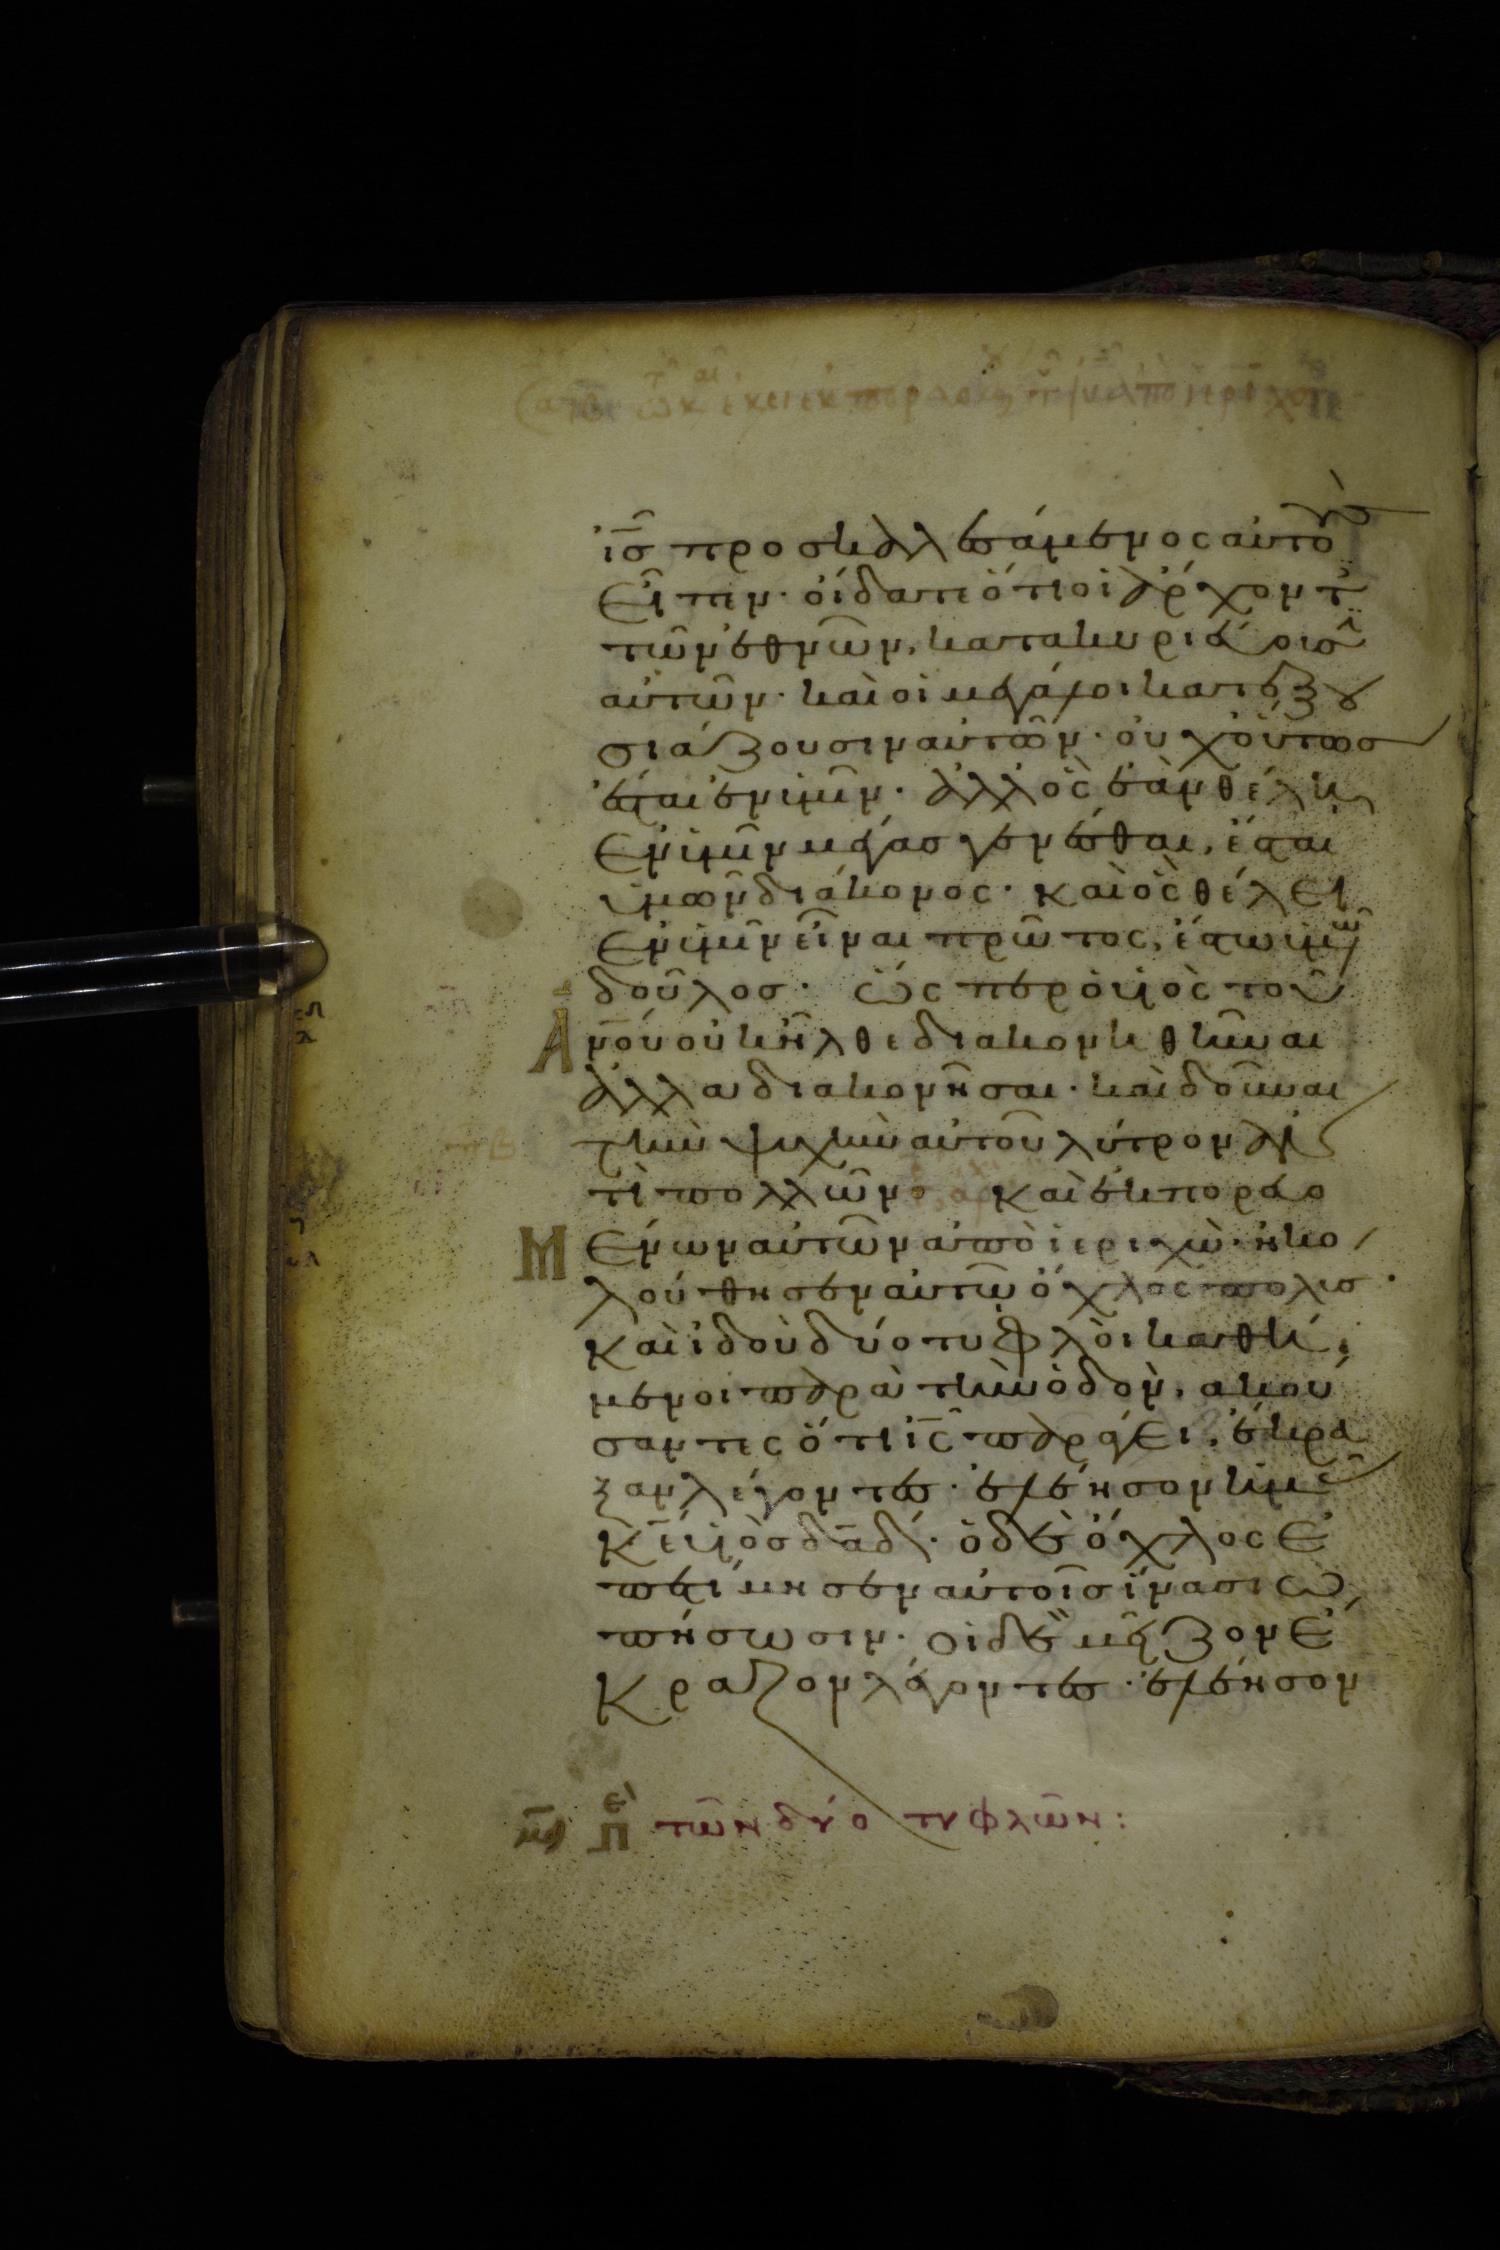 ἰ̅σ̅ προσκαλεσάμενος αὐτοὺς
εἶπεν· οἴδατε ὅτι οἱ ἄρχοντ
τῶν ἐθνῶν, κατακυριεύουσιν
αὐτῶν· καὶ οἱ μεγάλοι κατεξου
σιάζουσιν αὐτῶν· οὐχ οὕτωσ
ἔσται ἐν ὑμῖν· ἀλλ ὃς ἐὰν θέλη
ἐν ὑμῖν μέγασ γενέσθαι, ἔσται
ὑμῶν διάκονος· καὶ ὃς θέλει
ἐν ὑμῖν εἶναι πρῶτος, ἔστω ὑμῶν
δοῦλοσ· ὥς περ ὁ υἱὸς τοῦ
Α ν̅ο̅υ̅ οὐκ ἦλθε διακονηθῆναι
ἀλλα διακονῆσαι· καὶ δοῦναι
τὴν ψυχὴν αὐτοῦ λύτρον ἀν
τὶ πολλῶν καὶ ἐκπορευο
Μ ένων αὐτῶν ἀπὸ ἱεριχὼ· ἠκο
λούθησεν αὐτῶ ὄχλος πολυσ·
καὶ ἰδοὺ δύο τυφλὸι καθή
μενοι παρὰ τὴν ὁδὸν, ακού
σαντες ὅτι ἰ̅ς̅ παράγει, ἔκρα
ξαν λέγοντες· ἐλέησον ἡμᾶσ
κ̅ε̅ υἱὸσ δ̅α̅δ̅· ὁ δὲ ὄχλος ἐ
πετίμησεν αὐτοῖσ ἵνα σιω
πήσωσιν· οἱ δὲ μεῖζον ἔ
κραζον λέγοντες· ἐλέησον
τῶν δύο τυφλῶν: